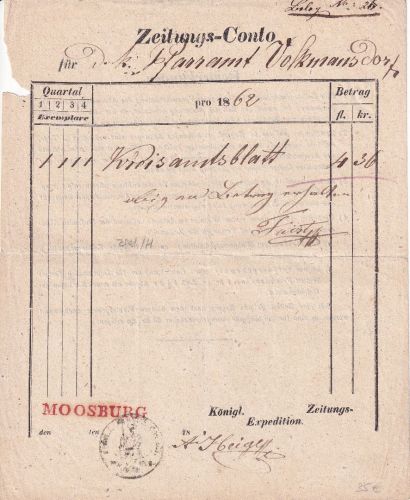 Beleg No. 26.
Zeitungs-Conto
für Pfarramt Volkmansdorf
Quartal
1 2 3 4
Exemplare
pro 1862
Betrag
fl. kr.
1 1 1 1 Kreisamtsblatt 4 36
obigen Betrag erhalten
MOOSBURG
Königl. Zeitungs-
Expedition.
den ten 18
35€